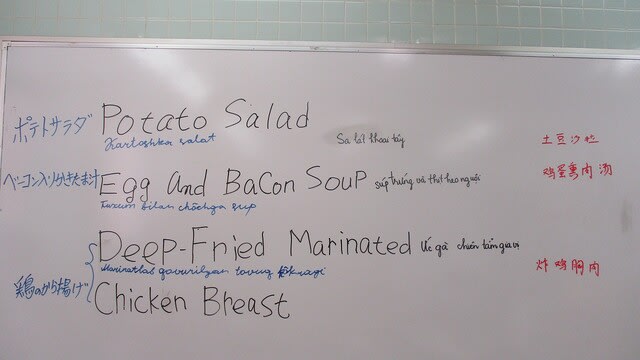 ポテトサラダ Potato Salad
Kartoshka salat Sa lát khoai tây 土豆沙拉
ベーコン入りかきたま汁 Egg and Bacon Soup súp trứng và thịt heo nguội 鸡蛋熏肉汤
Tuxum bilan chõchqa sup
Deep-Fried Marinated Ức gà chiên tẩm gia vị
Marinatlab qovurilgan tovuq 炸鸡胸肉
鶏のから揚げ Chicken Breast